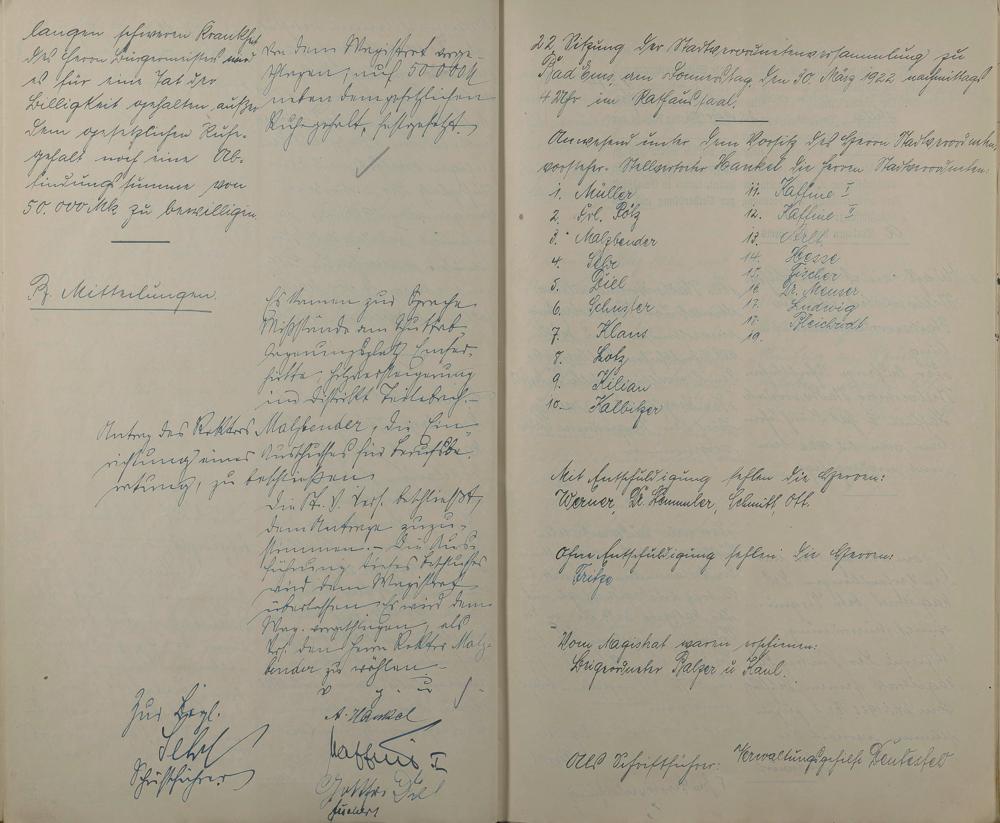 langen schweren Krankheit
des Herrn Bürgermeisters wird
es für eine Tat der
Billigkeit gehalten außer
dem gesetzlichen Ruhe-
gehalt noch eine Ab-
findungssumme von
50.000 Mk zu bewilligen.
Von dem Magistrat vorge-
schlagen, auf 50 000 M
neben dem gesetzlichen
Ruhegehalt, festgesetzt.
B. Mitteilungen.
Es kamen zur Sprache
Mißstände am
Emser-
hütte, Holzversteigerung
im Distrikt
Antrag des Rektors Malzbender, die Ein-
richtung eines Ausschusses für Berufsbe-
ratung, zu beschließen
Die St. V. Vers. beschließt,
dem Antrage zuzu-
stimmen. – Die Aus-
führung dieses Beschlusses
wird dem Magistrat
überlassen. Es wird dem
Mag. vorgeschlagen, als
Vors. den Herrn Rektor Malz-
bender zu wählen –
v. g. u.
Zur Begl.
Schriftführer
A. Hankel
Kaffine I
22. Sitzung der Stadtverordnetenversammlung zu
Bad Ems, am Donnerstag, den 30. März 1922 nachmittags
4 Uhr im Rathaussaal.
Anwesend unter dem Vorsitz des Herrn Stadtverordneten-
vorsteher-Stellvertreter Hankel die Herren Stadtverordneten:
1. Müller
2. Frl. Götz
3. Malzbender
4.
5. Giell
6. Schuster
7. Klaus
8. Lotz
9. Kilian
10. Kalbitzer
11. Kaffine I
12. Kaffine II
13. Arlt
14. Hesse
15. Fischer
16. Dr. Meuser
17. Ludwig
18. Bleichrodt
19.
Mit Entschuldigung fehlen die Herren:
Werner, Dr. Stemmler, Schmitt, Ott.
Ohne Entschuldigung fehlen die Herren:
Fritze
Vom Magistrat waren erschienen:
Beigeordneter Balzer u. Kaul.
Als Schriftführer: Verwaltungsgehilfe Deutesfeld